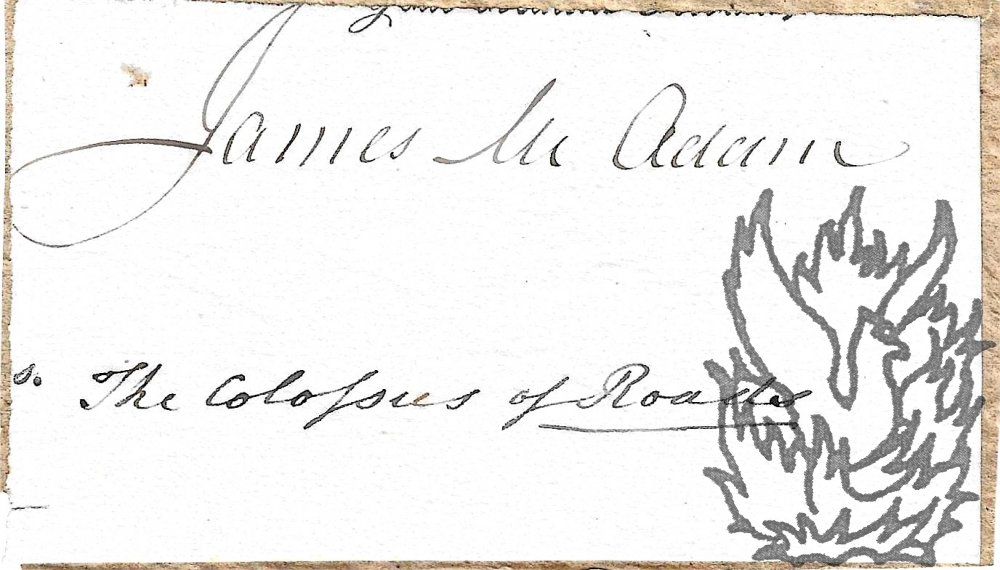 James Mc Adam
s. The Coloſsus of Roads